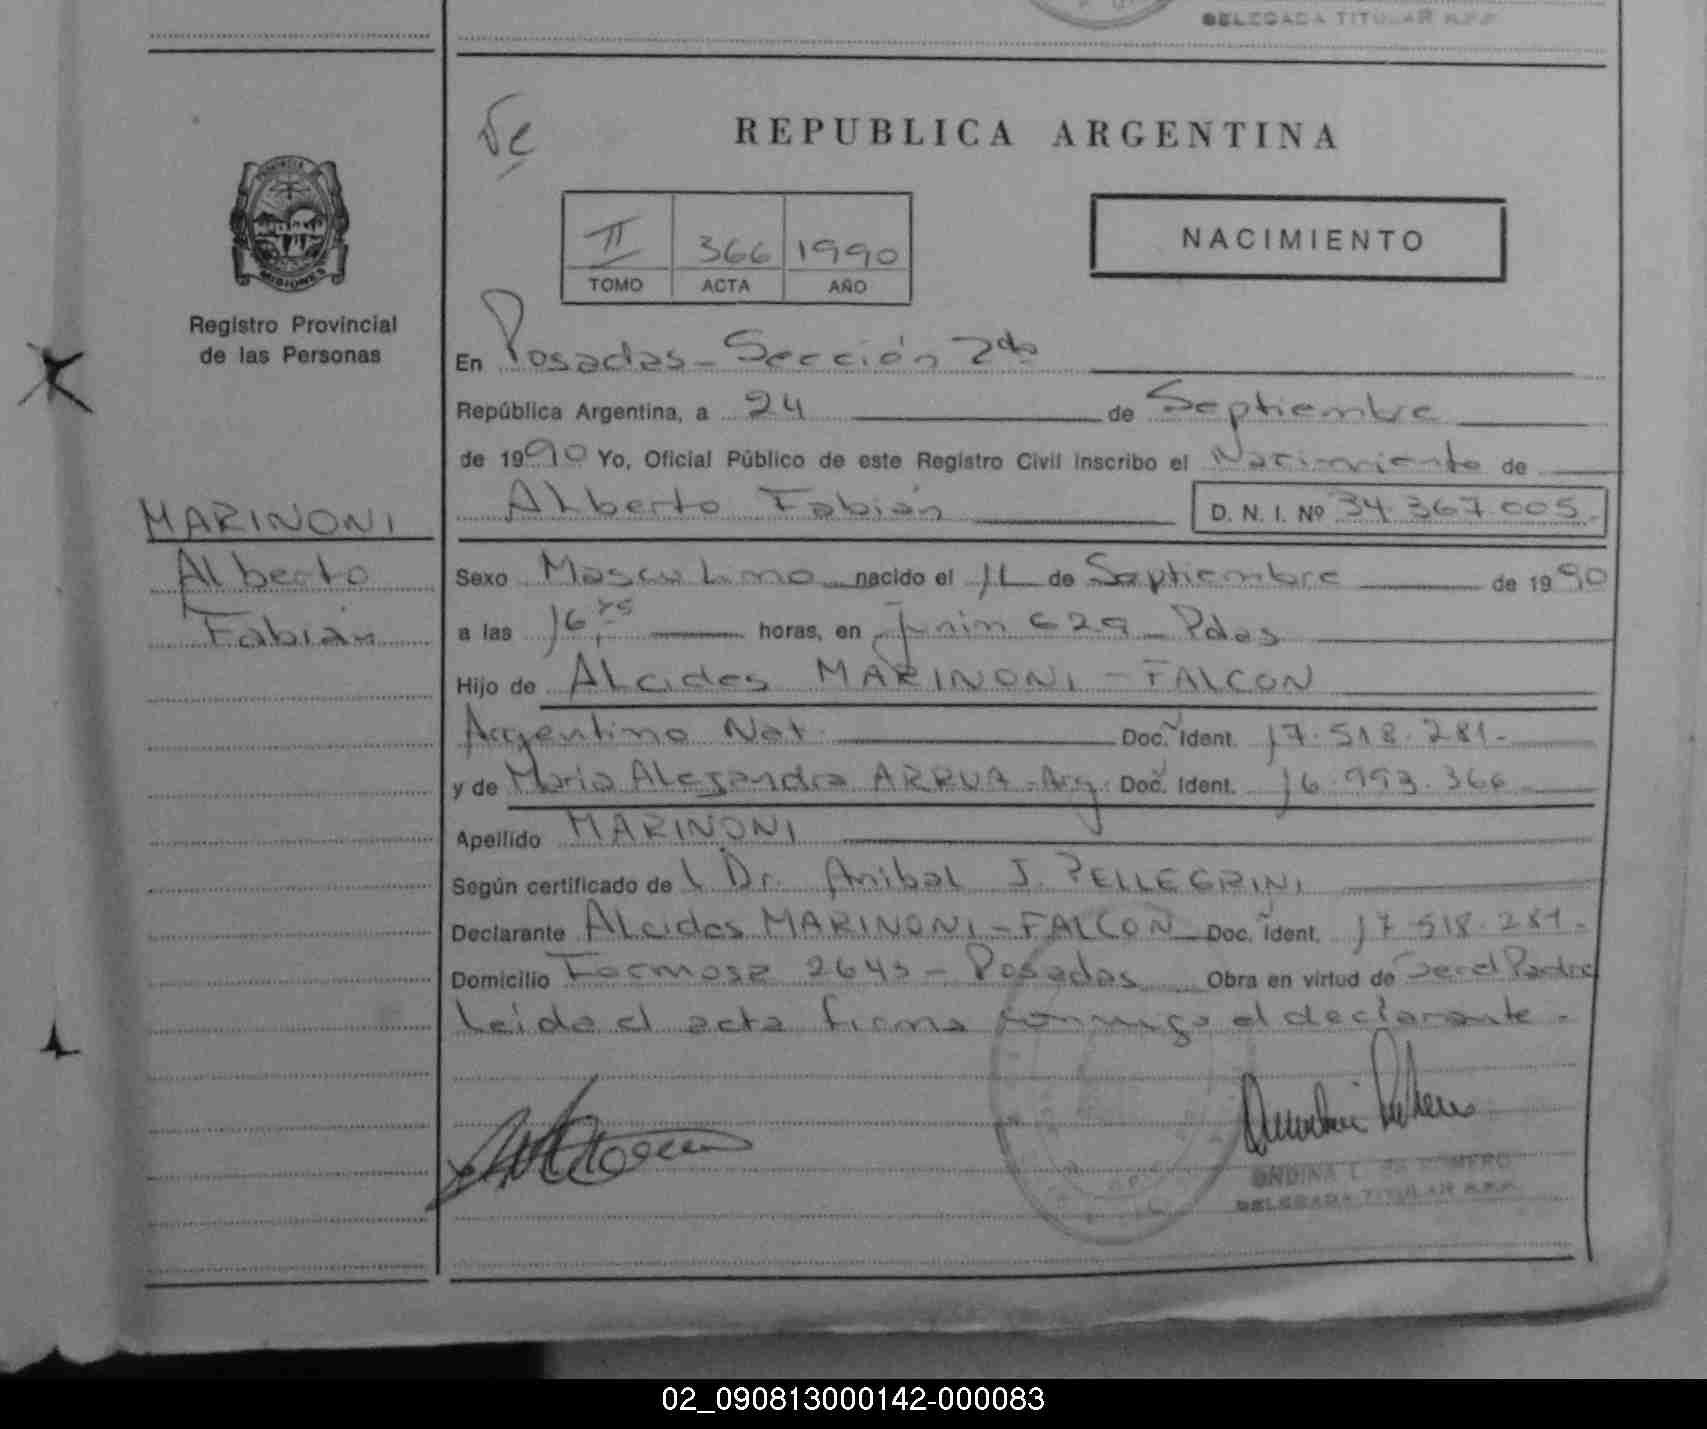 DELEGADA TITULAR R.P.P.
REPUBLICA ARGENTINA
II 366 1990
TOMO ACTA AÑO
NACIMIENTO
PROVINCIA
MISIONES
Registro Provincial
de las Personas
En Posadas - Sección 2da
República Argentina, a 24 de Septiembre
de 1990 Yo, Oficial Público de este Registro Civil inscribo el Nacimiento de
Alberto Fabián D. N. I. Nº 34.367.005.
MARINONI
Alberto
Fabián
Sexo Masculino nacido el 11 de Septiembre de 1990
a las 16, horas, en Junin 629 - Pdas
Hijo de Alcides MARINONI - FALCON
Argentino Nat. Doc. Ident. 17.518.281.-
y de Maria Alejandra ARRUA - Arg. Doc. Ident. 16.993.366
Apellido MARINONI
Según certificado del Dr. Anibal J. PELLEGRINI
Declarante Alcides MARINONI - FALCON Doc. Ident. 17.518.281.-
Domicilio Formosa 2645 - Posadas Obra en virtud de Ser el Padre
Leida el acta firma conmigo el declarante.-
ONDINA ROMERO
DELEGADA TITULAR R.P.P.
02_090813000142-000083